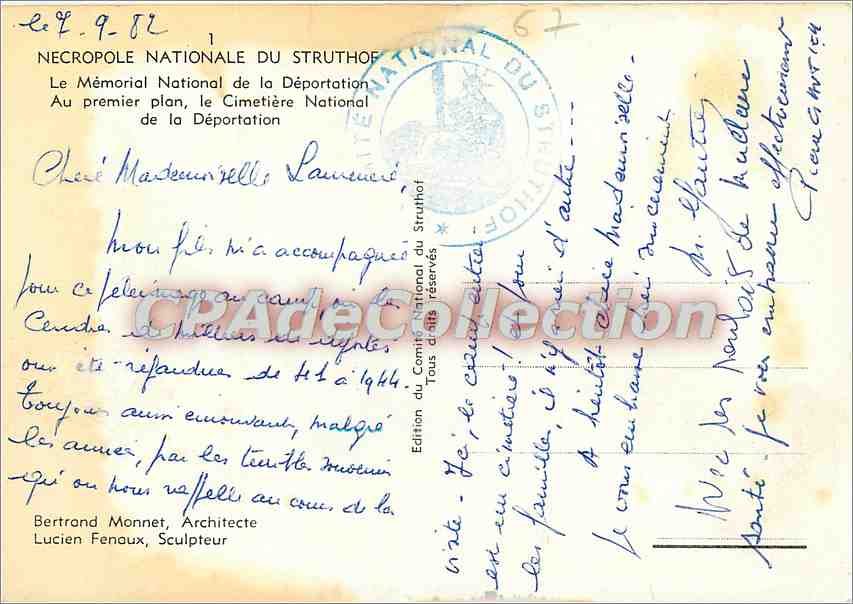 le 7-9-82
67
1
NECROPOLE NATIONALE DU STRUTHOF
Le Mémorial National de la Déportation
Au premier plan, le Cimetière National
de la Déportation
COMITÉ NATIONAL DU STRUTHOF
Chère Mademoiselle
Mon fils m'a accompagnée
pour ce pèlerinage au camp, où les
Cendres de milliers de déportés
ont été répandues de 41 à 1944.
Toujours aussi émouvant, malgré
les années, par les terribles souvenirs
qu'on nous rappelle au cours de la
Bertrand Monnet, Architecte
Lucien Fenaux, Sculpteur
Edition du Comité National du Struthof
Tous droits réservés
CPAdeCollection
visite - Ici,
est un cimetière! et pour
les familles, il n'y a rien d'autre---
A bientôt Chère Mademoiselle-
je vous embrasse bien sincèrement
M.
Avec
santé. Je vous embrasse affectueusement